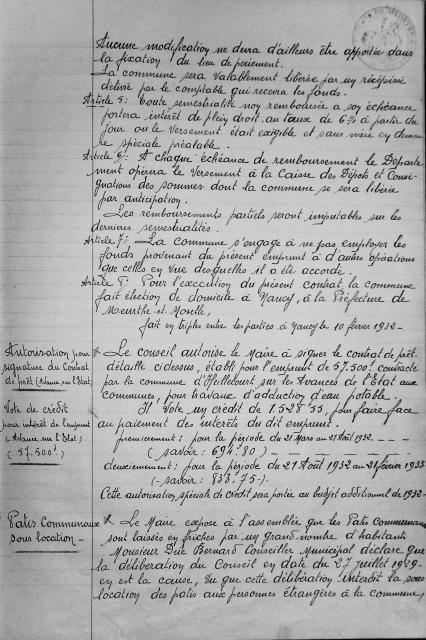 Aucune modification ne devra d'ailleurs être apportée dans
la fixation du lieu de paiement.
La commune sera valablement libérée par un récépissé
délivré par le comptable qui recevra les fonds.
Article 5: Toute semestrialité non remboursée a son échéance
portera intérêt de plein droit, au taux de 6% à partir du
jour ou le versement était exigible et sans mise en demeu
re spéciale préalable.
Article 6: A chaque échéance de remboursement le Départe
ment opérera le versement à la Caisse des Dépôts et Consi-
gnations des sommes dont la commune se sera libérée
par anticipation.
Les remboursements partiels seront imputables sur les
derniers semestrialités.
Article 7: La commune s'engage à ne pas employer les
fonds provenant du présent emprunt à d'autres opérations
que celles en vue desquelles il a été accordé.
Article 8: Pour l'exécution du présent contrat, la commune
fait élection de domicile à Nancy, à la Préfecture de
Meurthe-et-Moselle,
fait en triples entre les parties à Nancy le 10 février 1932-
Autorisation pour
signature du Contrat
de prêt (Avance sur l'Etat)
Le Conseil autorise le Maire à signer le contrat de prêt
détaillé cidessus, établi pour l'emprunt de 57.500f contracté
par la commune d' sur les Avances de l'Etat aux
communes, pour travaux d'adduction d'eau potable.
Vote de crédit
pour intérêt de l'emprunt
s. Avance sur l'Etat)
(57.500f)
Il vote un crédit de 1528f55, pour faire face
au paiement des intérêts du dit emprunt.
premièrement: pour la période du 21 Mars au 21 Août 1932. - - -
(savoir: 694f80) - - -
deuxièmement: pour la période du 21 Août 1932 au 21 février 1933
(-savoir: 833f75-).
Cette autorisation spéciale de crédit sera portée au budget additionnel de 1932-
Patis Communaux
sous location-
Le Maire expose à l'assemblée que les Patis communaux
sont laissés en friches par un grand nombre d'habitants
Monsieur Duc Bernard Conseiller Municipal déclare que
la délibération du Conseil en date du 27 juillet 1929-
en est la cause, Vu que cette délibération interdit la sous
location des patis aux personnes étrangères à la commune,